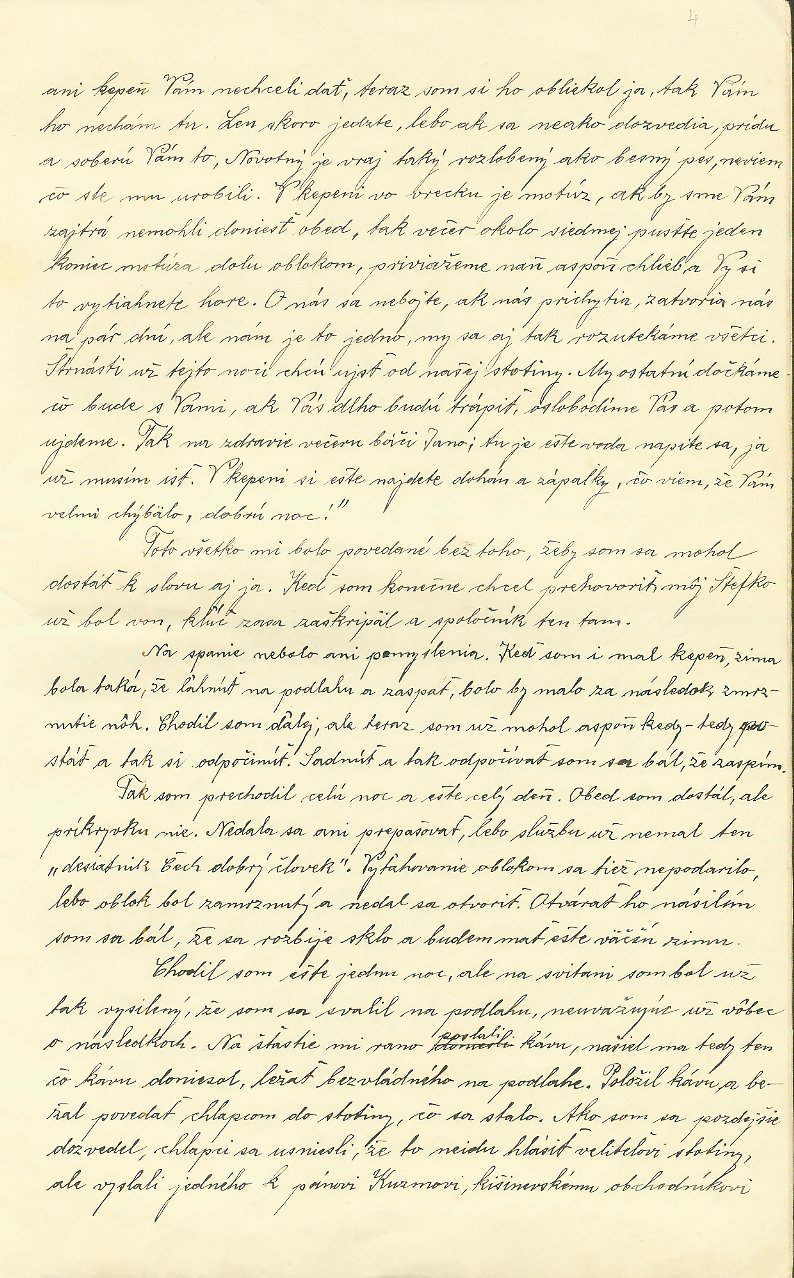 4
ani kepeň Vám nechceli dať, teraz som si ho obliekol ja, tak Vám
ho nechám tu. Len skoro jedzte, lebo ak sa neako dozvedia, prídu
a soberú Vám to, Novotný je vraj taký rozlobený ako besný pes, neviem
čo ste mu urobili. V kepeni vo vrecku je motúz, ak by sme Vám
zajtrá nemohli doniesť obed, tak večer okolo siedmej pusťte jeden
koniec motúza dolu oblokom, priviažeme naň aspoň chlieb a Vy si
to vytiahnete hore. O nás sa nebojte, ak nás prichytia, zatvoria nás
na pár dní, ale nám je to jedno, my sa aj tak rozutekáme všetci.
Štrnásti už tejto noci chcú ujsť od našej stotiny. My ostatní dočkáme
čo bude s Vami, ak Vás dlho budú trápiť, oslobodíme Vás a potom
ujdeme. Tak na zdravie večeru báči Jano; tu je ešte voda napite sa, ja
už musím isť. V kepeni si ešte najdete dohán a zápalky, čo viem, že Vám
velmi chýbälo, dobrú noc!"
Toto všetko mi bolo povedané bez toho, žeby som sa mohol
dostáť k slovu aj ja. Keď som konečne chcel prehovoriť, môj Štefko
už bol von, kľúč zasa zaškripäl a spoločník ten tam.
Na spanie nebolo ani pomyslenia. Keď som i mal kepeň, zima
bola taká, že ľahnúť na podlahu a zaspať, bolo by malo za následok zmrz-
nutie nôh. Chodil som ďalej, ale teraz som už mohol aspoň kedy-tedy po-
stáť a tak si odpočinúť. Sadnúť a tak odpočívať som sa bál, že zaspím.
Tak som prechodil celú noc a ešte celý deň. Obed som dostál, ale
príkryvku nie. Nedala sa ani prepašovať, lebo službu už nemal ten
„desiatnik Čech dobrý človek". Vyťahovanie oblokom sa tiež nepodarilo,
lebo oblok bol zamrznutý a nedal sa otvoriť. Otvárať ho násilím
som sa bál, že sa rozbije sklo a budem mať ešte väčšú zimu.
Chodil som ešte jednu noc, ale na svitaní som bol už
tak vysilený, že som sa svalil na podlahu, neuvažujúc už vôbec
o následkoch. Na šťastie mi rano poslali kávu, našiel ma tedy ten
čo kávu doniesol, ležať bezvládného na podlahe. Položil kávu, a be-
žal povedať chlapcom do stotiny, čo sa stalo. Ako som sa pozdejšie
dozvedel, chlapci sa usniesli, že to neidu hlásiť veliteľovi stotiny,
ale vyslali jedného k pánovi Kuzmovi, kišinevskému obchodníkovi